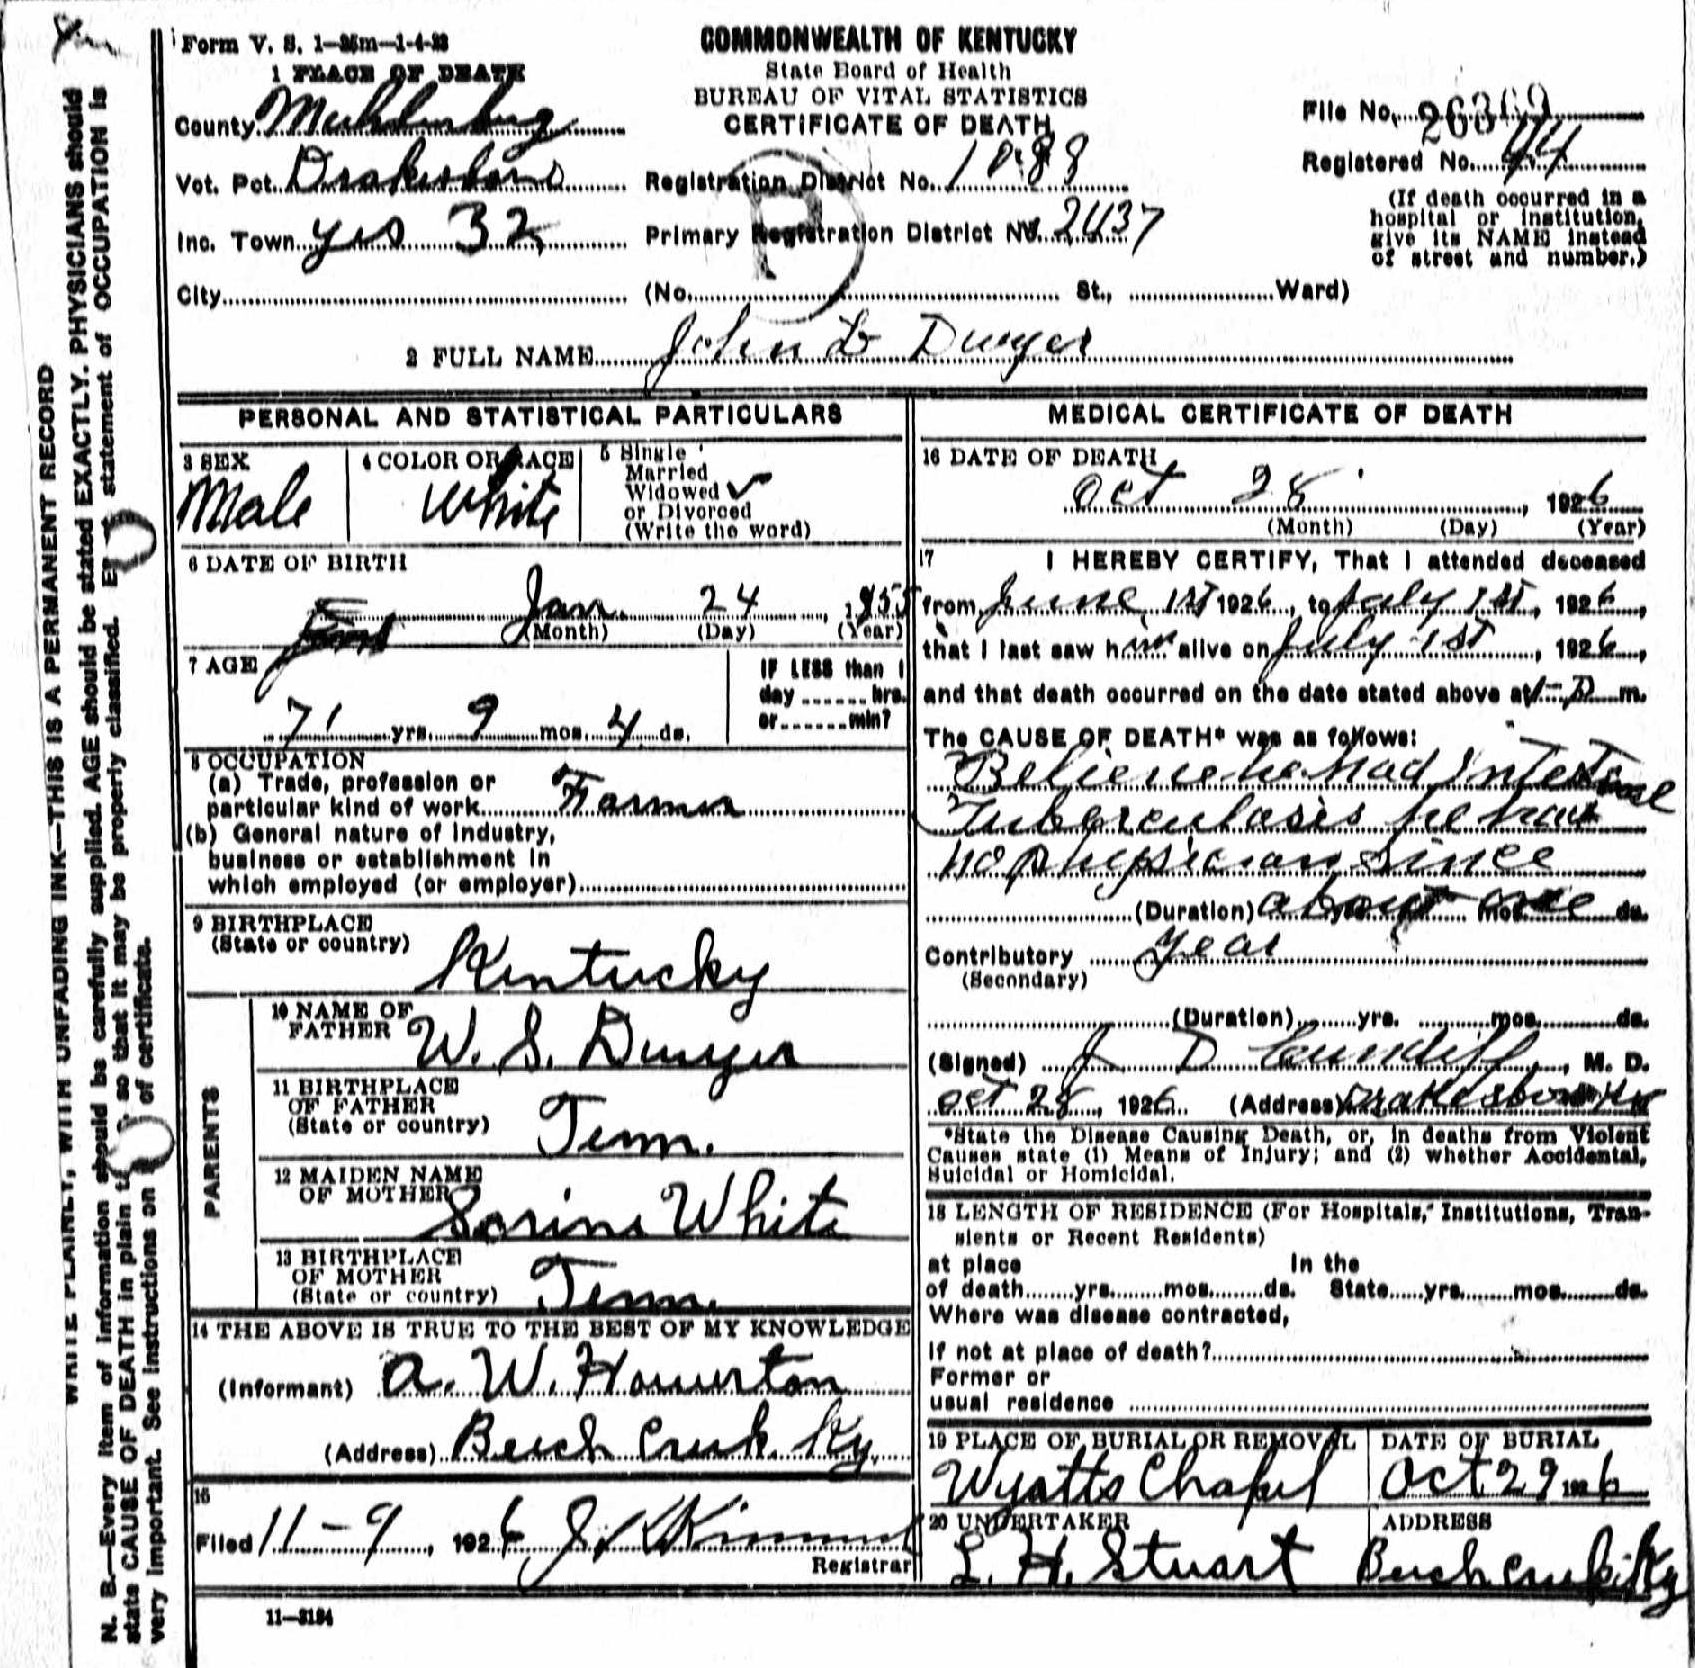 Form V. S. 1—25m—1-4-23
COMMONWEALTH OF KENTUCKY
State Board of Health
BUREAU OF VITAL STATISTICS
CERTIFICATE OF DEATH
1 PLACE OF DEATH
County Muhlenberg
File No. 26369
Registered No. 44
Vot. Pct. Drakesboro
Registration District No. 1088
Inc. Town yes 32
Primary Registration District No. 2437
(If death occurred in a
hospital or institution,
give its NAME instead
of street and number.)
City (No. St., Ward)
2 FULL NAME John B Dwyer
PERSONAL AND STATISTICAL PARTICULARS
3 SEX
Male
4 COLOR OR RACE
White
5 Single
Married
Widowed ✓
or Divorced
(Write the word)
6 DATE OF BIRTH
Jan. 24, 1855
(Month) (Day) (Year)
7 AGE
71 yrs. 9 mos. 4 ds.
IF LESS than 1
day ...... hrs.
or ...... min?
8 OCCUPATION
(a) Trade, profession or
particular kind of work Farmer
(b) General nature of industry,
business or establishment in
which employed (or employer)
9 BIRTHPLACE
(State or country)
Kentucky
PARENTS
10 NAME OF
FATHER W. S. Dwyer
11 BIRTHPLACE
OF FATHER
(State or country) Tenn.
12 MAIDEN NAME
OF MOTHER White
13 BIRTHPLACE
OF MOTHER
(State or country) Tenn.
14 THE ABOVE IS TRUE TO THE BEST OF MY KNOWLEDGE
(Informant) A. W. Howerton
(Address) Beech Creek Ky.
15
Filed 11-9, 1926
Registrar
11—3184
MEDICAL CERTIFICATE OF DEATH
16 DATE OF DEATH
Oct 28, 1926
(Month) (Day) (Year)
17 I HEREBY CERTIFY, That I attended deceased
from June 1st 1926, to July 1st, 1926,
that I last saw him alive on July 1st, 1926,
and that death occurred on the date stated above at m.
The CAUSE OF DEATH* was as follows:
Believe he had Intestinal
Tuberculosis he had
no physician since
(Duration) about yrs. mos. one ds.
Contributory year
(Secondary)
(Duration) yrs. mos. ds.
(Signed) J D Cundiff, M. D.
Oct 28, 1926. (Address) Drakesboro Ky
*State the Disease Causing Death, or, in deaths from Violent
Causes state (1) Means of Injury; and (2) whether Accidental,
Suicidal or Homicidal.
18 LENGTH OF RESIDENCE (For Hospitals, Institutions, Tran-
sients or Recent Residents)
at place In the
of death yrs. mos. ds. State yrs. mos. ds.
Where was disease contracted,
if not at place of death?
Former or
usual residence
19 PLACE OF BURIAL OR REMOVAL
Wyatts Chapel
DATE OF BURIAL
Oct 29 1926
20 UNDERTAKER
L. H. Stuart
ADDRESS
Beech Creek Ky
WRITE PLAINLY, WITH UNFADING INK—THIS IS A PERMANENT RECORD
N. B.—Every item of information should be carefully supplied. AGE should be stated EXACTLY. PHYSICIANS should
state CAUSE OF DEATH in plain so that it may be properly classified. statement of OCCUPATION is
very important. See instructions on of certificate.